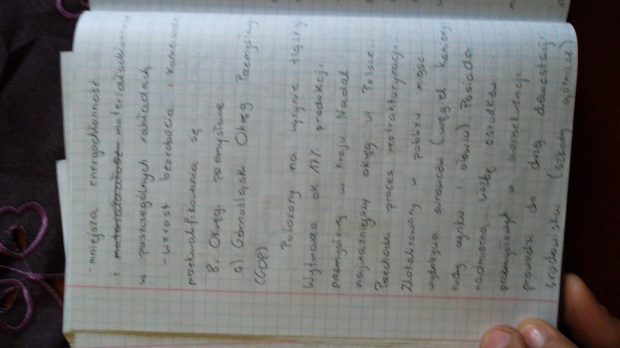 - mniejsza energochłonność
i materiałochłonność
w poszczególnych zakładach
- wzrost bezrobocia i konieczność
przekwalifikowania się
8. Okręgi przemysłowe
a) Górnośląski Okręg Przemysłowy
(GOP)
Położony na wyżynie śląskiej
Wytwarza ok 17% produkcji
przemysłowej w kraju Nadal
najważniejszy okręg w Polsce.
Przechodzi proces restrukturyzacji.
Zlokalizowany w pobliżu miejsc
wydobycia surowców (węgiel kamienny
rudy cynku i ołowiu) Posiada
nadmierną liczbę ośrodków
przemysłowych
prowadzi do dużej dewastacji
środowiska (szkody górnicze)